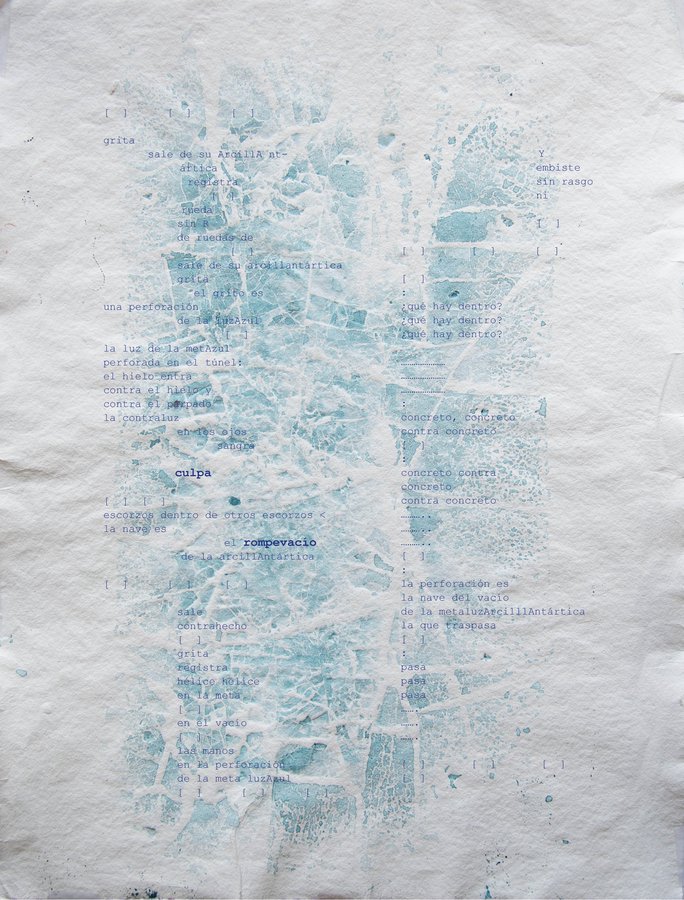 [ ] [ ] [ ]
grita
sale de su ArcillA nt-
ártica
registra
[ ]
rueda
sin R
de ruedas de
[ ]
sale de su arcillantártica
grita
el grito es
una perforación
de la luzAzul
[ ]
la luz de la metAzul
perforada en el túnel:
el hielo entra
contra el hielo y
contra el párpado
la contraluz
en los ojos
sangre
culpa
[ ] [ ]
escorzos dentro de otros escorzos <
la nave es
el rompevacío
de la arcillAntártica
[ ] [ ] [ ]
sale
contrahecho
[ ]
grita
registra
hélice hélice
en la meta
[ ]
en el vacío
[ ]
las manos
en la perforación
de la meta luzAzul
[ ] [ ] [ ]
Y
embiste
sin rasgo
ni
[ ]
[ ] [ ] [ ]
[ ]
:
¿qué hay dentro?
¿qué hay dentro?
¿qué hay dentro?
……………
……………
……………
:
concreto, concreto
contra concreto
[ ]
concreto contra
concreto
contra concreto
………..
………..
………..
[ ]
:
la perforación es
la nave del vacío
de la metaluzArcilllAntártica
la que traspasa
[ ]
:
pasa
pasa
pasa
…….
…….
[ ] [ ] [ ]
[ ]